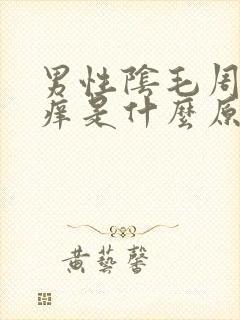 男性陰毛周
痒是什麼原
黄藝馨